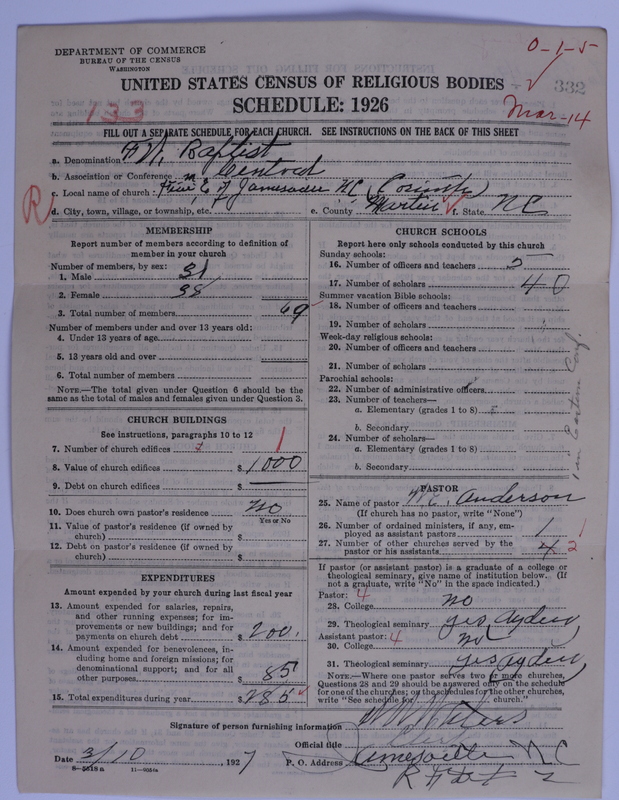 DEPARTMENT OF COMMERCE
BUREAU OF THE CENSUS
WASHINGTON
0-1-5
332
UNITED STATES CENSUS OF RELIGIOUS BODIES
SCHEDULE: 1926
133
Mar-14
FILL OUT A SEPARATE SCHEDULE FOR EACH CHURCH. SEE INSTRUCTIONS ON THE BACK OF THIS SHEET
a. Denomination F.W. Baptist
b. Association or Conference Central
c. Local name of church: Jamesville NC (Corinth)
R
d. City, town, village, or township, etc. e. County Martin f. State NC
MEMBERSHIP
Report number of members according to definition of member in your church
Number of members, by sex:
1. Male 31
2. Female 38
3. Total number of members 69
Number of members under and over 13 years old:
4. Under 13 years of age
5. 13 years old and over
6. Total number of members
NOTE.—The total given under Question 6 should be the same as the total of males and females given under Question 3.
CHURCH BUILDINGS
See instructions, paragraphs 10 to 12
7. Number of church edifices 1
8. Value of church edifices $ 1000
9. Debt on church edifices $
10. Does church own pastor's residence no
Yes or No
11. Value of pastor's residence (if owned by church) $
12. Debt on pastor's residence (if owned by church) $
EXPENDITURES
Amount expended by your church during last fiscal year
13. Amount expended for salaries, repairs, and other running expenses; for improvements or new buildings; and for payments on church debt $ 200.
14. Amount expended for benevolences, including home and foreign missions; for denominational support; and for all other purposes $ 85
15. Total expenditures during year $ 285
CHURCH SCHOOLS
Report here only schools conducted by this church
Sunday schools:
16. Number of officers and teachers 5
17. Number of scholars 40
Summer vacation Bible schools:
18. Number of officers and teachers
19. Number of scholars
Week-day religious schools:
20. Number of officers and teachers
21. Number of scholars
Parochial schools:
22. Number of administrative officers
23. Number of teachers—
a. Elementary (grades 1 to 8)
b. Secondary
24. Number of scholars—
a. Elementary (grades 1 to 8)
b. Secondary
PASTOR
25. Name of pastor Anderson
(If church has no pastor, write "None")
26. Number of ordained ministers, if any, employed as assistant pastors 1 1
27. Number of other churches served by the pastor or his assistants 4 2
If pastor (or assistant pastor) is a graduate of a college or theological seminary, give name of institution below. (If not a graduate, write "No" in the space indicated.)
Pastor: 4
28. College no
29. Theological seminary yes Ayden
Assistant pastor: 4
30. College no
31. Theological seminary yes Ayden
NOTE.—Where one pastor serves two or more churches, Questions 28 and 29 should be answered only on the schedule for one of the churches; on the schedules for the other churches, write "See schedule for church.)
Signature of person furnishing information
Official title
Date 3/10, 1927
P. O. Address Jamesville NC
8-5518 a 11-9054a